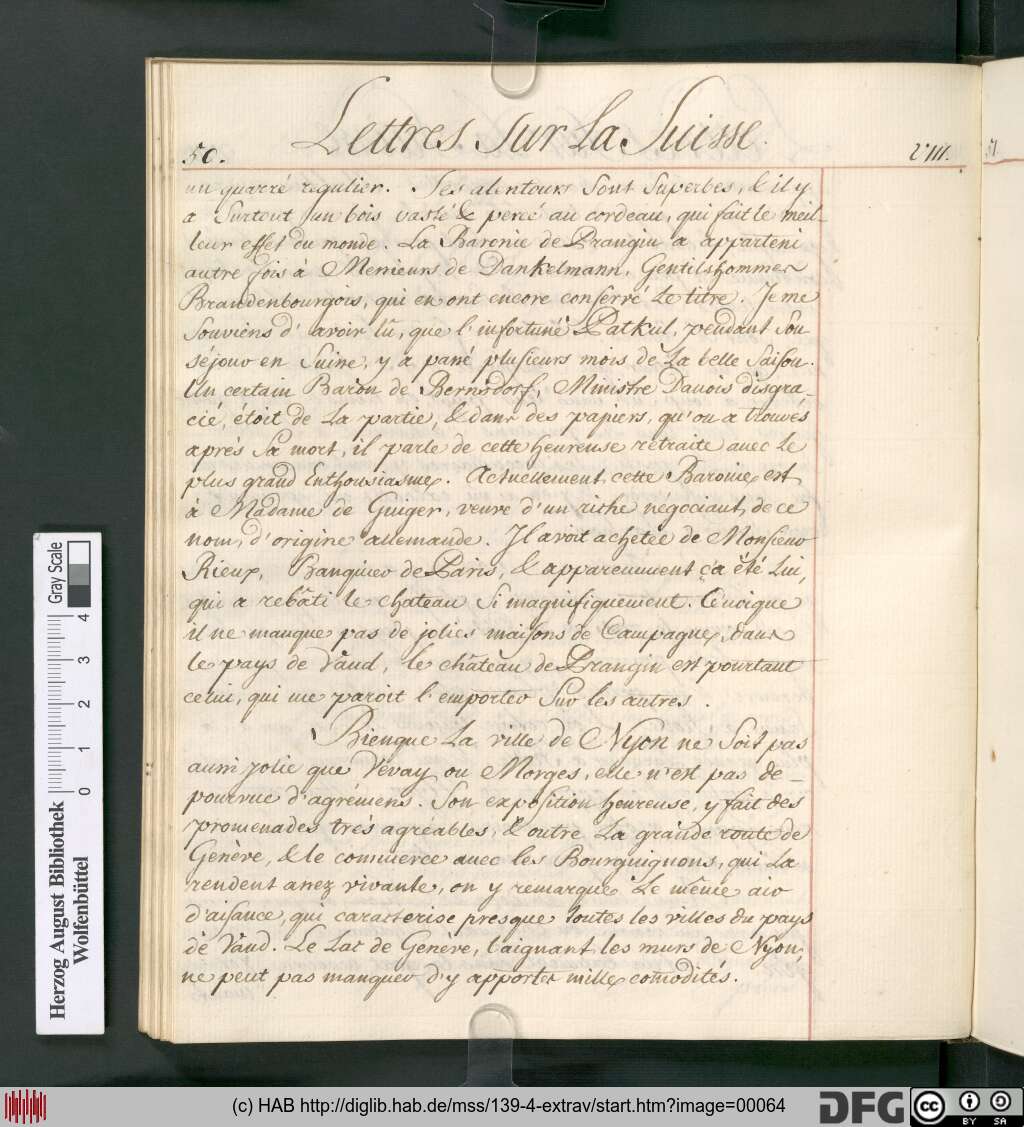 Lettres Sur La Suisse.
50. VIII.
un quarré regulier. Ses alentours sont superbes, & il y
a surtout un bois vasté & percé au cordeau, qui fait le meil-
leur effet du monde. La Baronie de Prangin a apparteni
autre fois à Messieurs de Dankelmann, Gentilshommes
Brandenbourgois, qui en ont encore conservé le titre. Je me
souviens d'avoir lû, que l'infortuné Patkul, pendant son
séjour en Suisse, y a passé plusieurs mois de la belle saison.
Un certain Baron de Bernsdorf, Ministre Danois disgra-
cié, étoit de la partie, & dans des papiers, qu'on a trouvés
aprés sa mort, il parle de cette heureuse retraite avec le
plus grand Enthousiasme. Actuellement cette Baronie est
à Madame de Guiger, veuve d'un riche négociant de ce
nom, d'origine allemande. Il avoit achetée de Monsieur
Rieux, Banquier de Paris, & apparemment ç'a été lui,
qui a rebâti le chateau si magnifiquement. Quoique
il ne manque pas de jolies maisons de Campagne, dans
le pays de Vaud, le château de Prangin est pourtant
celui, qui me paroit l'emporter sur les autres.
Bienque la ville de Nyon ne soit pas
aussi jolie que Vévay ou Morges, elle n'est pas de-
pourvue d'agrémens. Son exposition heureuse, y fait des
promenades trés agréables, & outre la grande route de
Genève, & le commerce avec les Bourguignons, qui la
rendent assez vivante, on y remarque le même air
d'aisance, qui caracterise presque toutes les villes du pays
de Vaud. Le Lac de Genève, baignant les murs de Nyon,
ne peut pas manquer d'y apporter mille comodités.
Herzog August Bibliothek
Wolfenbüttel
Gray Scale
0 1 2 3 4
(c) HAB http://diglib.hab.de/mss/139-4-extrav/start.htm?image=00064
DFG
cc BY SA